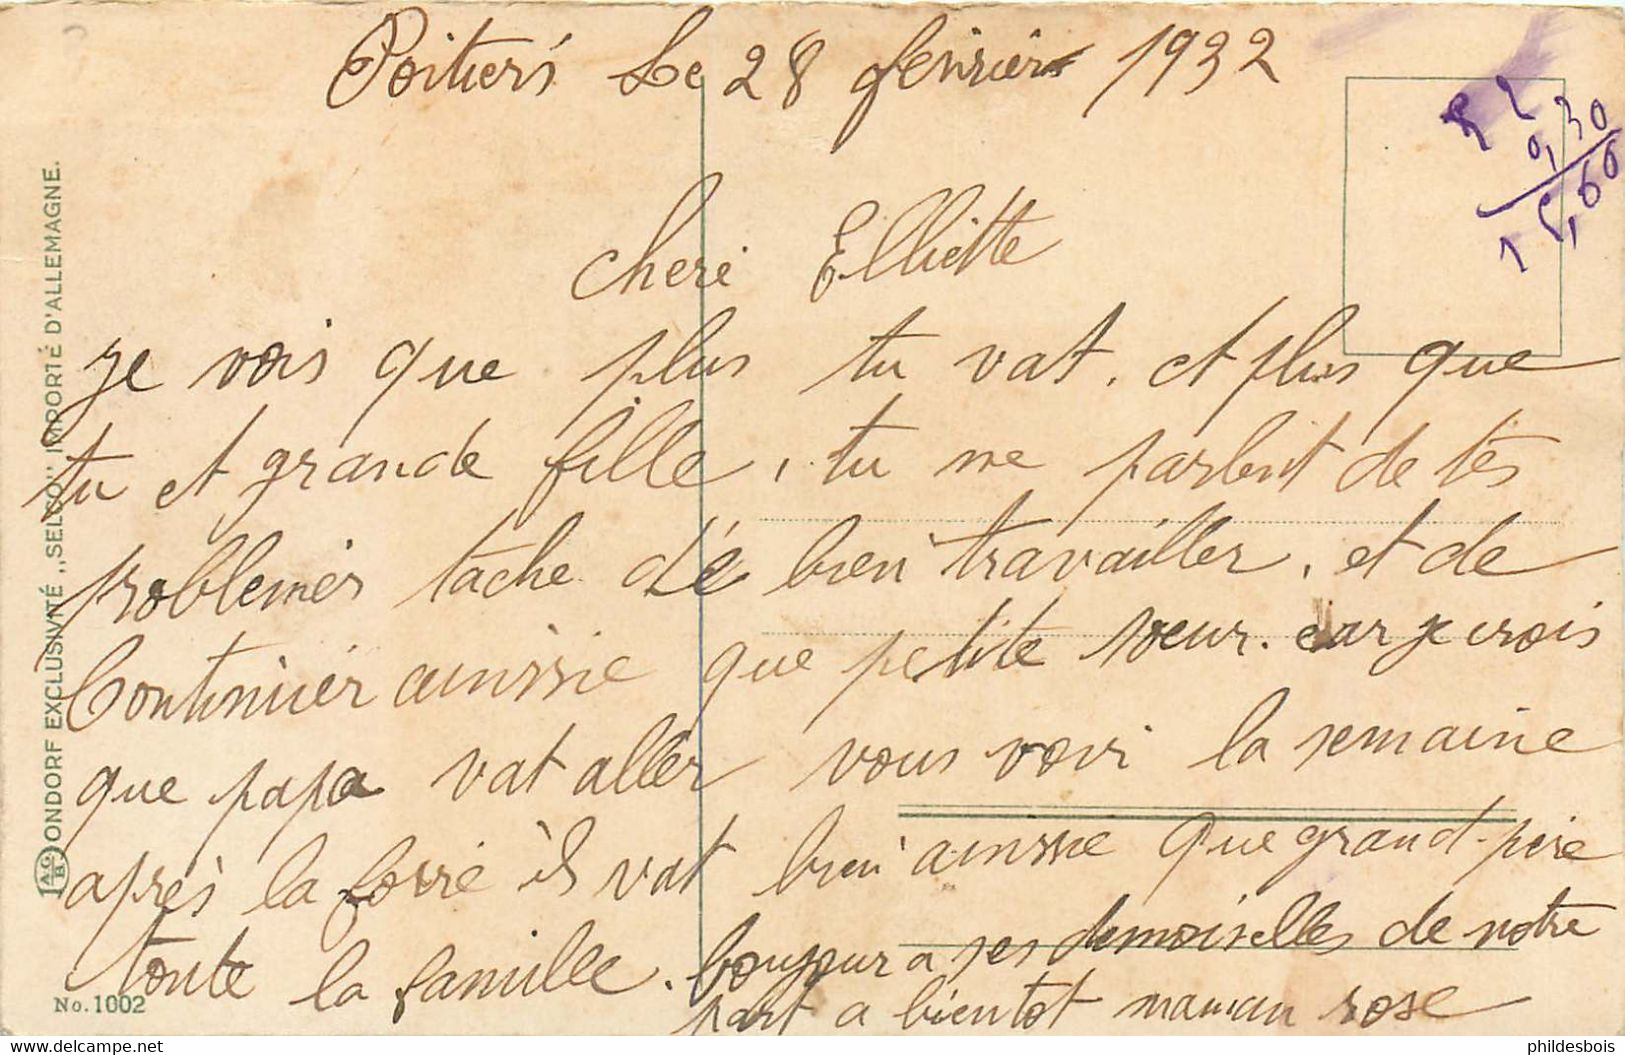 Poitiers Le 28 fevrier 1932
52
0,30
15,60
cheri Elliette
je vois que plus tu vat. et plus que
tu et grande fille, tu ne parlent de tes
problemes tache de bien travailler. et de
Continuer ainssie que petite soeur. car je crois
que papa vat aller vous voir la semaine
après la foire il vat bien ainssie que grand-père
toute la famille. bonjour a ses demoiselles de notre
part a bientot maman rose
ONDORF EXCLUSIVITÉ „SELGO" IMPORTÉ D'ALLEMAGNE.
No. 1002
phildesbois